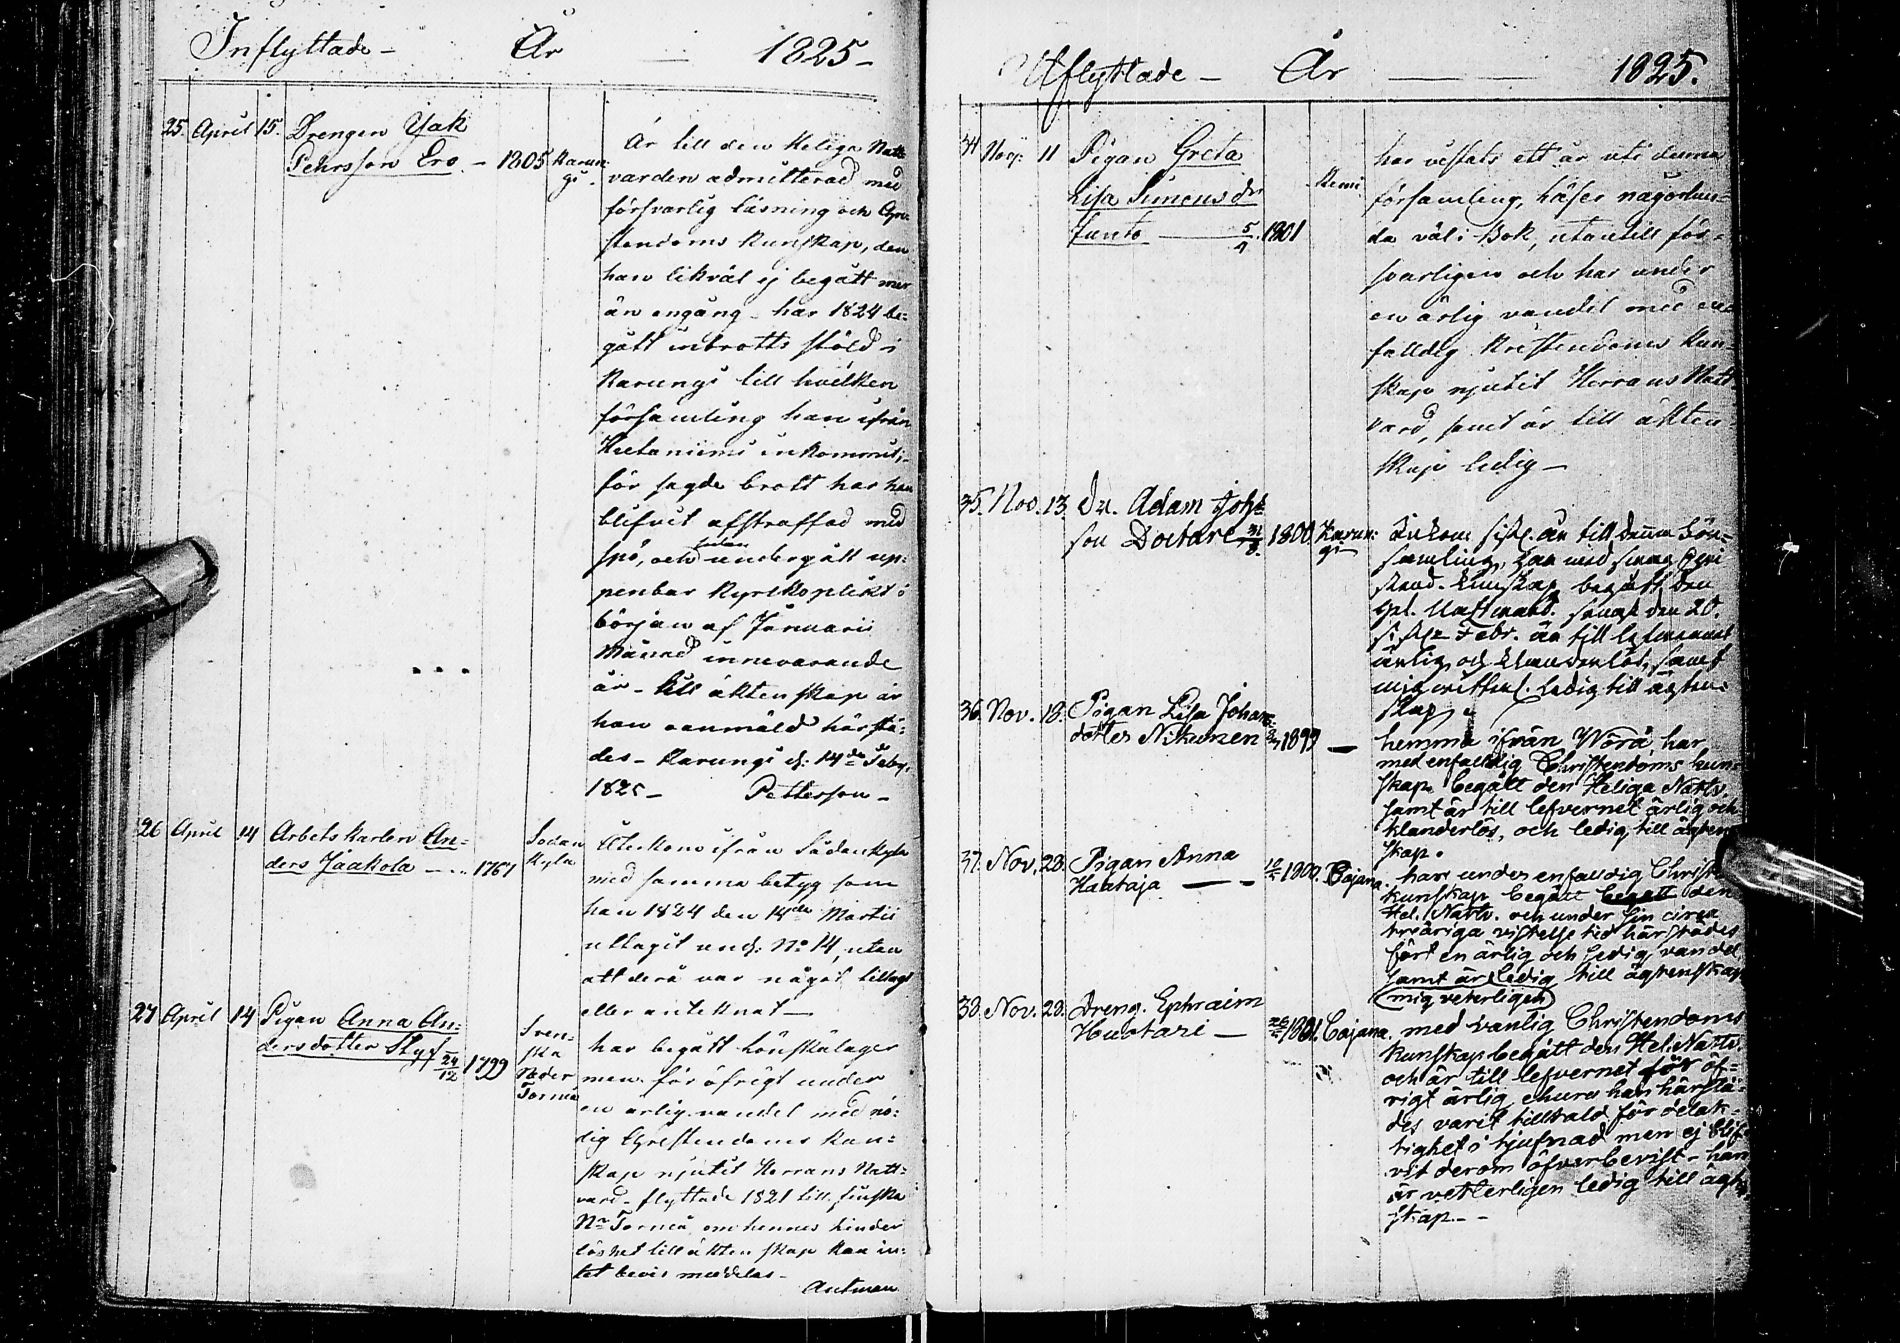 Inflyttade - År - 1825 -
25. April 15. Drengen Jak
Pehrsson Ero - 1805 Karun-
gi.
Är till den Heliga Natt-
varden admitterad med
försvarlig läsning och Chri-
stendoms kunskap, den
han likväl ej begått mer
än engång - har 1824 be-
gått inbrotts stöld i
Karungi till hvilken
församling han ifrån
inkommit;
för sagde brott har han
blifvit afstraffad med
spö, och sedan undergått up-
penbar kyrkoplikt i
början af Januarii
Månad innevarande
år - till äktenskap är
han oanmäld härstä-
des - Karungi d. 14de Febr.
1825 - Petterson -
26 April 14 Arbetskarlen An-
ders Jaakola - 1767
Sodan
kylä
Återkom ifrån Sodankylä
med samma betyg som
han 1824 den 14de Martii
uttagit und. No 14, utan
att derå var något tillagt
eller anteknat -
27 April 14 Pigan Anna An-
dersdotter Styf 24/12 1799
Sven-
ska
Neder
Torneå
har begått lönskalager
men för öfrigt under
en ärlig vandel med nö-
dig Christendoms kun-
skap njutit Herrans Natt-
vard - flyttade 1821 till finska
Nr Torneå, om hennes hinder
löshet till äktenskap kan in-
tet bevis meddelas -
Antman
Utflyttade - År - 1825.
34 Nov: 11 Pigan Greta
Lisa Simensdr
Junto - 5/4 1801
Kemi
har vistats ett år uti denna
församling, läser någorlun-
da väl i Bok, utantill för-
svarligen och har under
en ärlig vandel med en-
falldig Kristendoms kun-
skap njutit Herrans Natt
vard, samt är till äkten
skap ledig -
35. Nov. 13. Dr. Adam Joh-
son 1800. Karun-
gi
Inkom sistl. år till denna För-
samling, har med svag Chri
stend. kunskap begått den
Hel. Nattvard. senast den 20.
sistl. Febr. är till lefvernet
ärlig och klanderlös, samt
mig vitterl. ledig till ägten-
skap.
36. Nov. 18. Pigan Lisa Johans
dotter Nikunen 1799 -
hemma ifrån Wörå, har
med enfaldig Christendoms kun-
skap begått den Heliga Nattv.
samt är till lefvernet ärlig och
klanderlös, och ledig till ägten
skap.
37. Nov. 23. Pigan Anna
Haataja - 1800. Cajana.
har under enfaldig Christ.
kunskap begått begått den
Hel. Nattv. och under sin circa
treåriga vistelse tid härstädes
fört en ärlig och ledig vandel
samt är ledig till ägtenskap
(mig veterligen)
38. Nov. 23. Dreng. Ephraim
Huotari - 1801. Cajana.
med vanlig Christendoms
kunskap begått den Hel. Nattv.
och är till lefvernet för öf-
rigt ärlig ehuru han härstä-
des varit tilltald för delak-
tighet i tjufnad men ej blif-
vit derom öfverbevist - han
är vetterligen ledig till ägten
skap. -